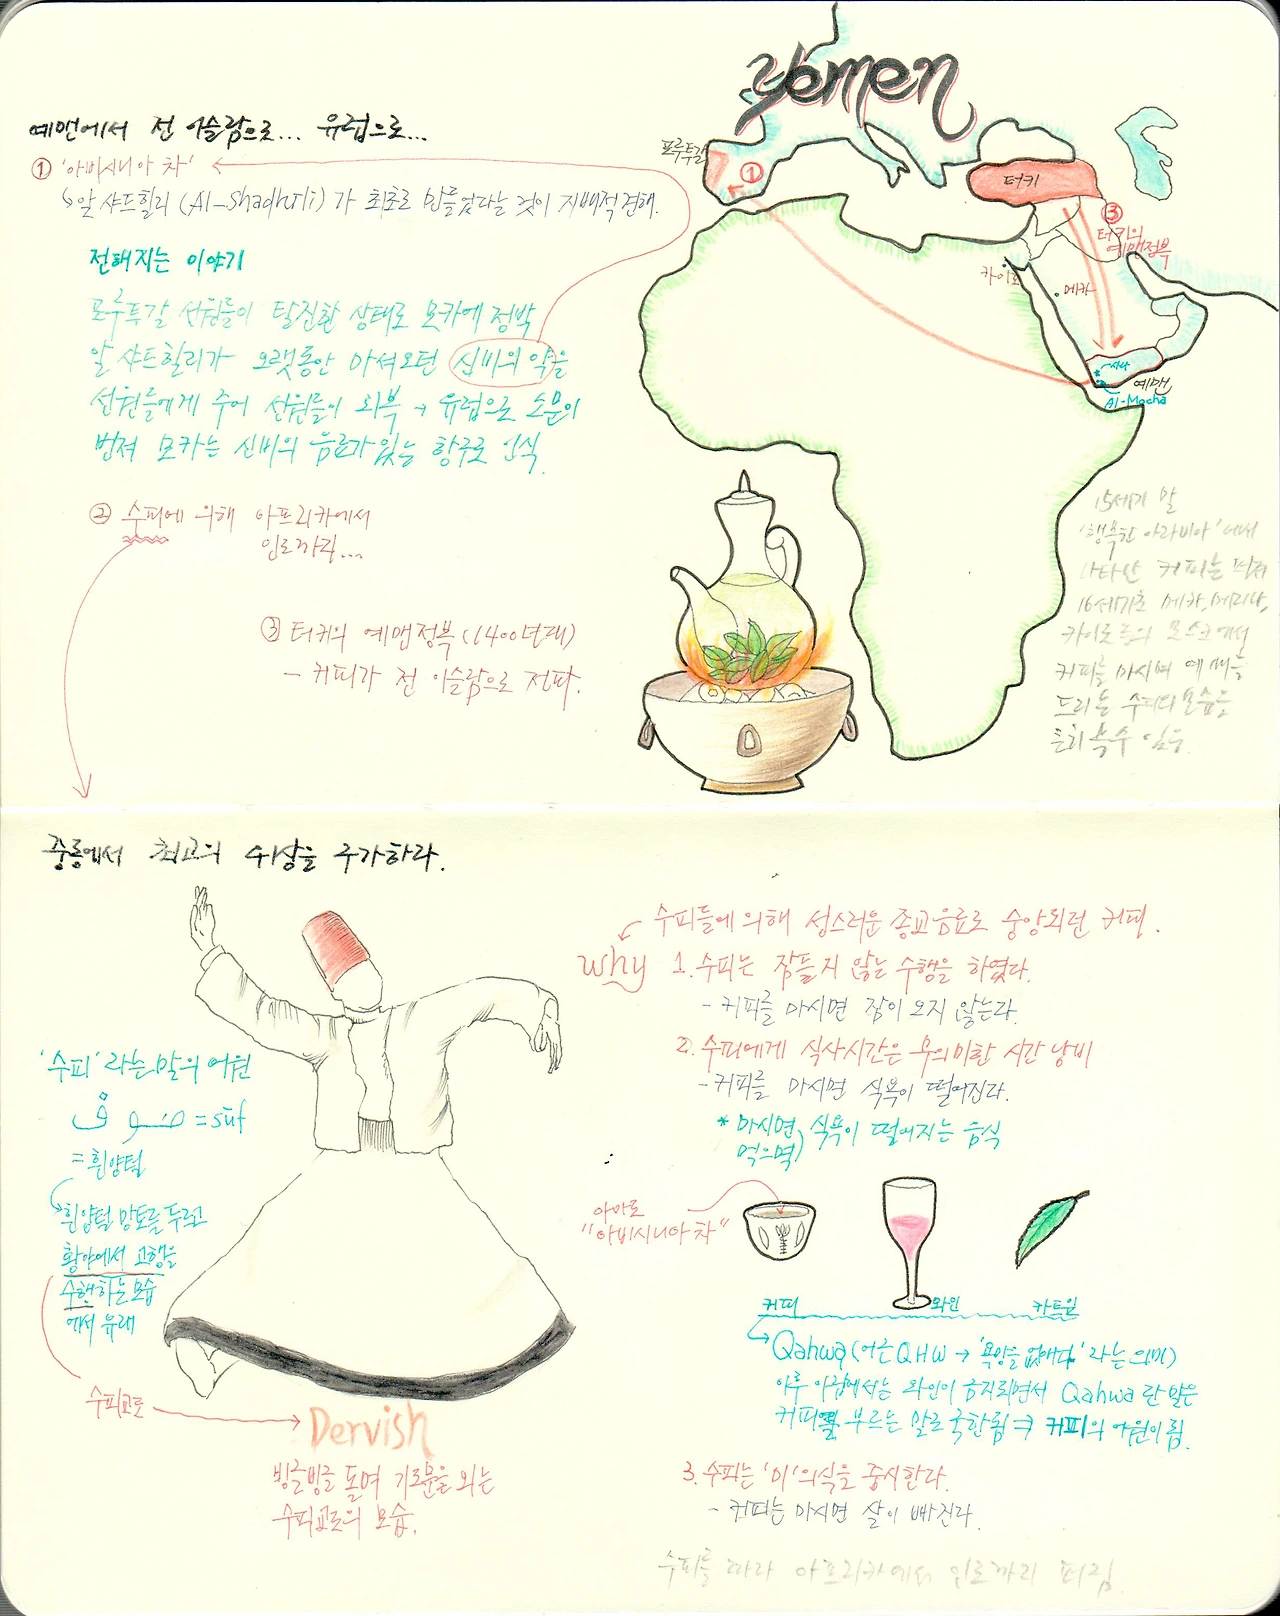 Yemen
예맨에서 전 이슬람으로... 유럽으로...
① '아비시니아 차'
↳알 샤드힐리 (Al-Shadhili) 가 최초로 만들었다는 것이 지배적견해.
전해지는 이야기
포루투갈 선원들이 탈진한 상태로 모카에 정박
알 샤드힐리가 오랫동안 마셔오던 신비의 약을
선원들에게 주어 선원들이 회복 → 유럽으로 소문이
번져 모카는 신비의 음료가 있는 항구로 인식.
② 수피에 의해 아프리카에서
인도까지...
③ 터키의 예맨정복 (1400년대)
- 커피가 전 이슬람으로 전파.
포루투갈
①
터키
③
터키의
예맨정복
카이로
메카
사나
예맨
Al-Mocha
15세기 말
'행복한 아라비아'에서
나타난 커피는 먼저
16세기초 메카, 메디나,
카이로 등의 모스크에서
커피를 마시며 예배를
드리는 수피의 모습을
흔히 볼수 있음.
중동에서 최고의 위상을 구가하라.
'수피' 라는 말의 어원
صوف = sūf
= 흰양털
흰양털 망토를 두르고
황야에서 고행을
수행하는 모습
에서 유래
수피교도
Dervish
빙글빙글 돌며 기도문을 외는
수피교도의 모습.
수피들에 의해 성스러운 종교음료로 숭앙되던 커피.
why 1. 수피는 잠들지 않는 수행을 하였다.
- 커피를 마시면 잠이 오지 않는다.
2. 수피에게 식사시간은 무의미한 시간 낭비
- 커피를 마시면 식욕이 떨어진다.
* 마시면, 식욕이 떨어지는 음식
먹으면
아마도
"아비시니아 차"
커피 와인 카트잎
Qahwa (어근 QHW → '욕망을 없애다' 라는 의미)
이후 이슬람에서는 와인이 금지되면서 Qahwa 란 말은
커피를 부르는 말로 국한됨 ⇒ 커피의 어원이 됨.
3. 수피는 '미' 의식을 중시한다.
- 커피는 마시면 살이 빠진다.
수피를 따라 아프리카에서 인도까지 퍼짐.